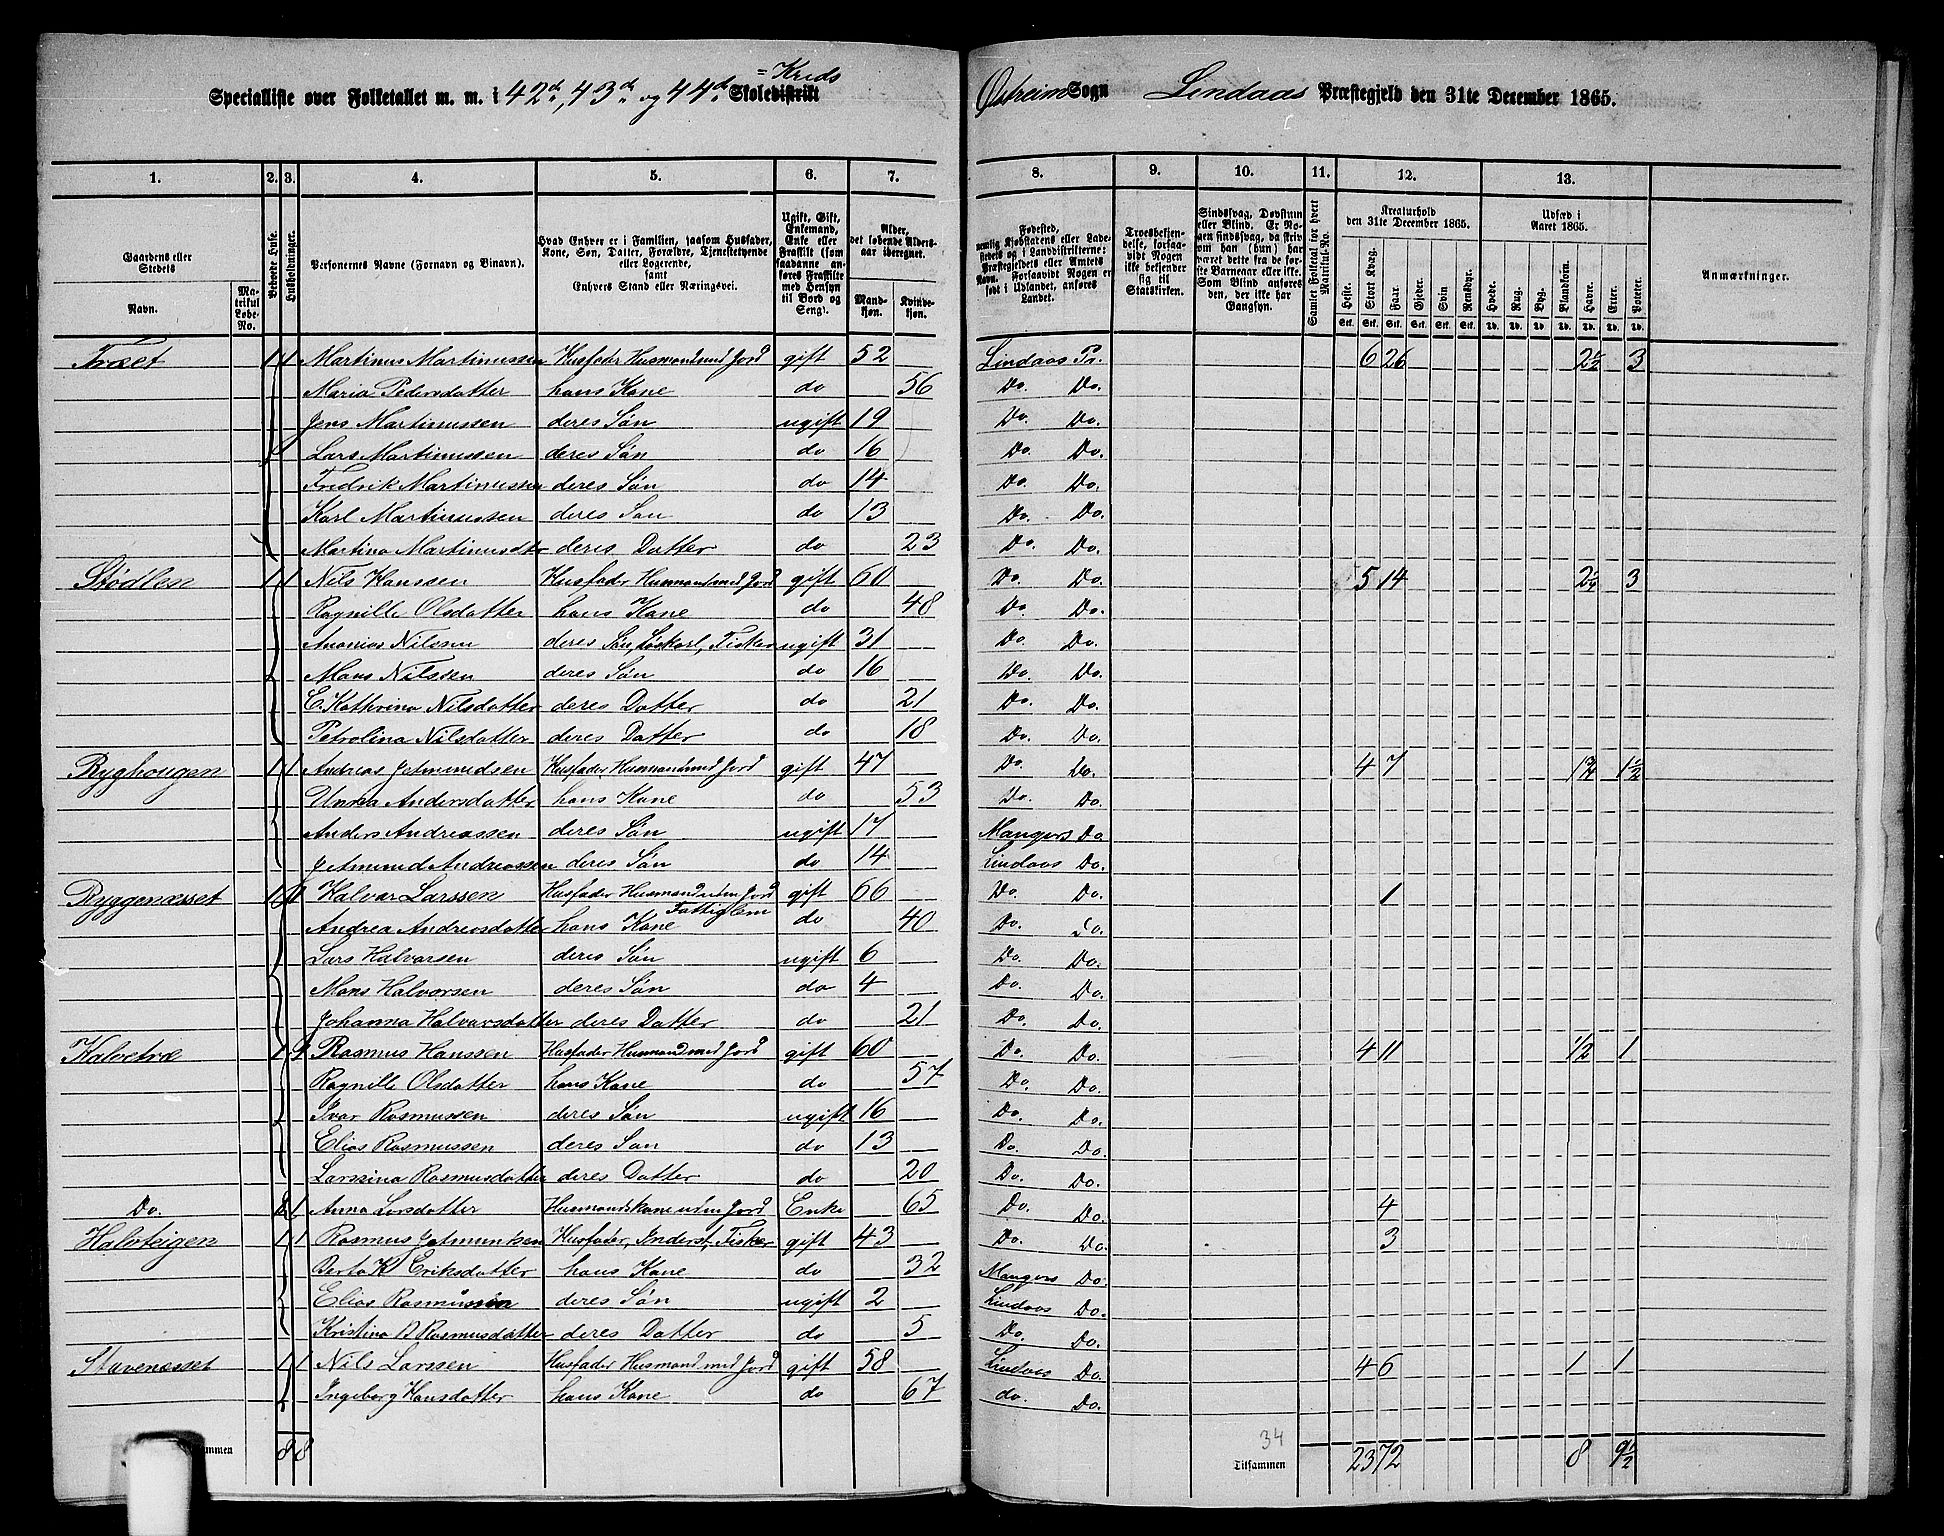 Specialliste over Folketallet m. m. i 42de, 43de og 44de Skoledistrikt = Kreds Østreim Sogn Lindaas Præstegjeld den 31te December 1865.
1. 2. 3. 4. 5. 6. 7. 8. 9. 10. 11. 12. 13.
Gaardens eller Stedets Navn. Matrikul Løbe-No. Beboede Huse. Husholdninger. Personernes Navne (Fornavn og Tilnavn). Hvad Enhver er i Familien, saasom Husfader, Kone, Søn, Datter, Forældre, Tjenestetyende eller Logerende, samt Enhvers Stand eller Næringsvei. Ugift, Gift, Enkemand, Enke eller Fraskilt (som saadanne anføres Fraskilte med Hensyn til Bord og Seng). Alder, det løbende Alders-aar iberegnet. Mandkjøn. Kvindekjøn. Fødested, nemlig Kjøbstadens eller Ladestedets og i Landdistrikterne: Præstegjeldets eller Amtets Navn. Forsaavidt Nogen er født i Udlandet, anføres Landet. Troesbekjendelse, forsaavidt Nogen ikke bekjender sig til Statskirken. Sindssvag, Døvstum eller Blind. Er Nogen sindssvag, da skrives om han (hun) har været dette fra de første Barneaar eller ikke. Som Blind anføres den, der ikke har Gangsyn. Samlet Folketal for hvert Matrikul-No. Kreaturhold den 31te December 1865. Heste. Stort Kvæg. Faar. Gjeder. Svin Rensdyr. Udsæd i Aaret 1865. Hvede. Rug. Byg. Blandkorn. Havre. Erter. Poteter. Anmærkninger.
Træet 1 1 Martinus Martinussen Husfader Husmand med Jord gift 52 Lindaas Pr. 6 26 2 1/2 3
Maria Pedersdatter hans Kone do 56 Do. Do.
Jens Martinussen deres Søn ugift 19 Do. Do.
Lars Martinussen deres Søn do 16 Do. Do.
Fredrik Martinussen deres Søn do 14 Do. Do.
Karl Martinussen deres Søn do 13 Do. Do.
Martina Martinusdtr deres Datter do 23 Do. Do.
Stødlen 1 1 Nils Hanssen Husfader Husmand med Jord gift 60 Do. Do. 5 14 2 1/4 3
Ragnille Olsdatter hans Kone do 48 Do. Do.
Ananias Nilssen deres Søn, Løskarl, Fisker ugift 31 Do. Do.
Mons Nilssen deres Søn do 16 Do. Do.
E. Kathrina Nilsdatter deres Datter do 21 Do. Do.
Petrolina Nilsdatter deres Datter do 18 Do. Do.
Ryghougen 1 1 Andreas Jetmundsen Husfader Husmand med Jord gift 47 Do. Do. 4 7 1 3/4 1 1/2
Unna Andersdatter hans Kone do 53 Do. Do.
Anders Andreassen deres Søn ugift 17 Mangers Do.
Jetmund Andreassen deres Søn do 14 Lindaas Do.
Ryggenæsset 1 1 Halvar Larssen Husfader Husmand uden Jord gift 66 Do. Do. 1
Andrea Andreasdatter hans Kone Fattiglem do 40 Do. Do.
Lars Halvorsen deres Søn ugift 6 Do. Do.
Mons Halvorsen deres Søn do 4 Do. Do.
Johanna Halvarsdatter deres Datter do 21 Do. Do.
Kalvetræ 1 Rasmus Hanssen Husfader Husmand med Jord gift 60 Do. Do. 4 11 1/2 1
Ragnille Olsdatter hans Kone do 57 Do. Do.
Ivar Rasmussen deres Søn ugift 16 Do. Do.
Elias Rasmussen deres Søn do 13 Do. Do.
Larsina Rasmusdatter deres Datter do 20 Do. Do.
Do. 1 Anna Larsdatter Husmandskone uden Jord Enke 65 Do. Do. 4
Halvteigen 1 1 Rasmus Jetmundsen Husfader, Inderst, Fisker gift 43 Do. Do. 3
Berta K Eriksdatter hans Kone do 32 Mangers Do.
Elias Rasmussen deres Søn ugift 2 Lindaas Do.
Kristina B Rasmusdatter deres Datter do 5 Do. Do.
Stavenæsset 1 1 Nils Larssen Husfader Husmand med Jord gift 58 Lindaas Do. 4 6 1 1
Ingeborg Hansdatter hans Kone do 67 do. Do.
8 8 34 Tilsammen 23 72 8 9 1/2